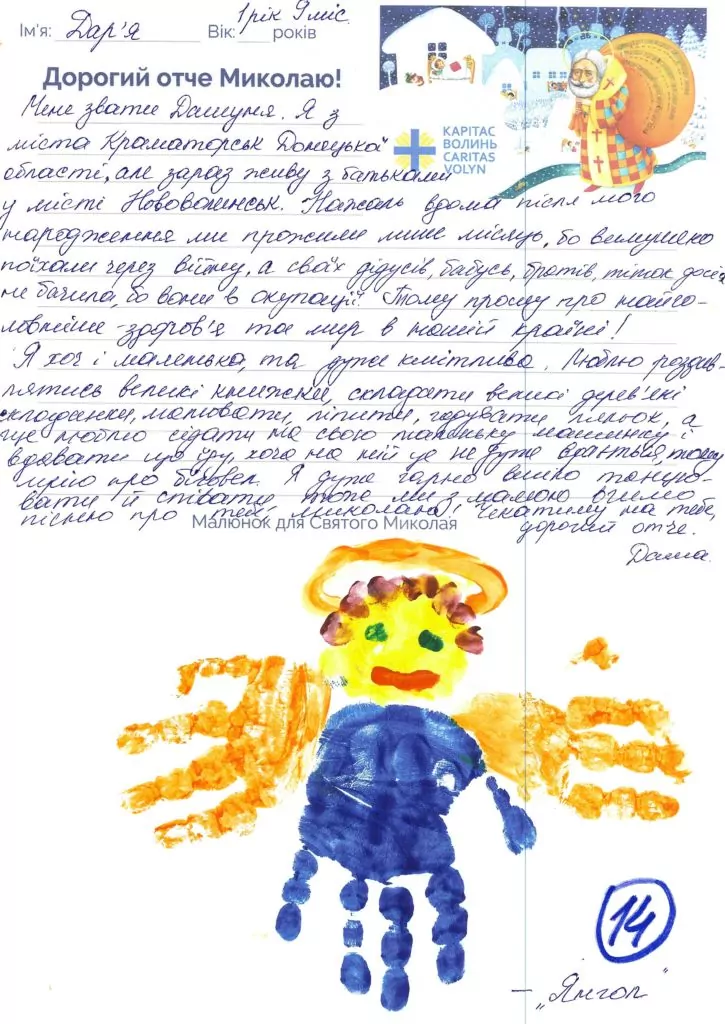 Ім'я: Дар'я Вік: 1 рік 9 міс. років
Дорогий отче Миколаю!
КАРІТАС
ВОЛИНЬ
CARITAS
VOLYN
Мене звати Дашуня. Я з
міста Краматорськ Донецької
області, але зараз живу з батьками
у місті Нововолинськ. Нажаль вдома після мого
народження ми прожили лише місяць, бо вимушено
поїхали через війну, а своїх дідусів, бабусь, братів, тіток досі
не бачила, бо вони в окупації. Тому прошу про найго-
ловніше - здоров'я та мир в нашій країні!
Я хоч і маленька, та дуже кмітлива. Люблю роздив-
лятись великі книжки, складати великі дерев'яні
складанки, малювати, ліпити, годувати ляльок, а
ще люблю сідати на свою маленьку машинку і
вдавати що їду, хоча на ній це не дуже вдається, тому
мрію про біговел. Я дуже гарно вмію танцю-
вати й співати, тож ми з мамою вчимо
пісню про тебе, Миколаю! Чекатиму на тебе,
дорогий отче.
Даша.
Малюнок для Святого Миколая
14
— „Янгол"